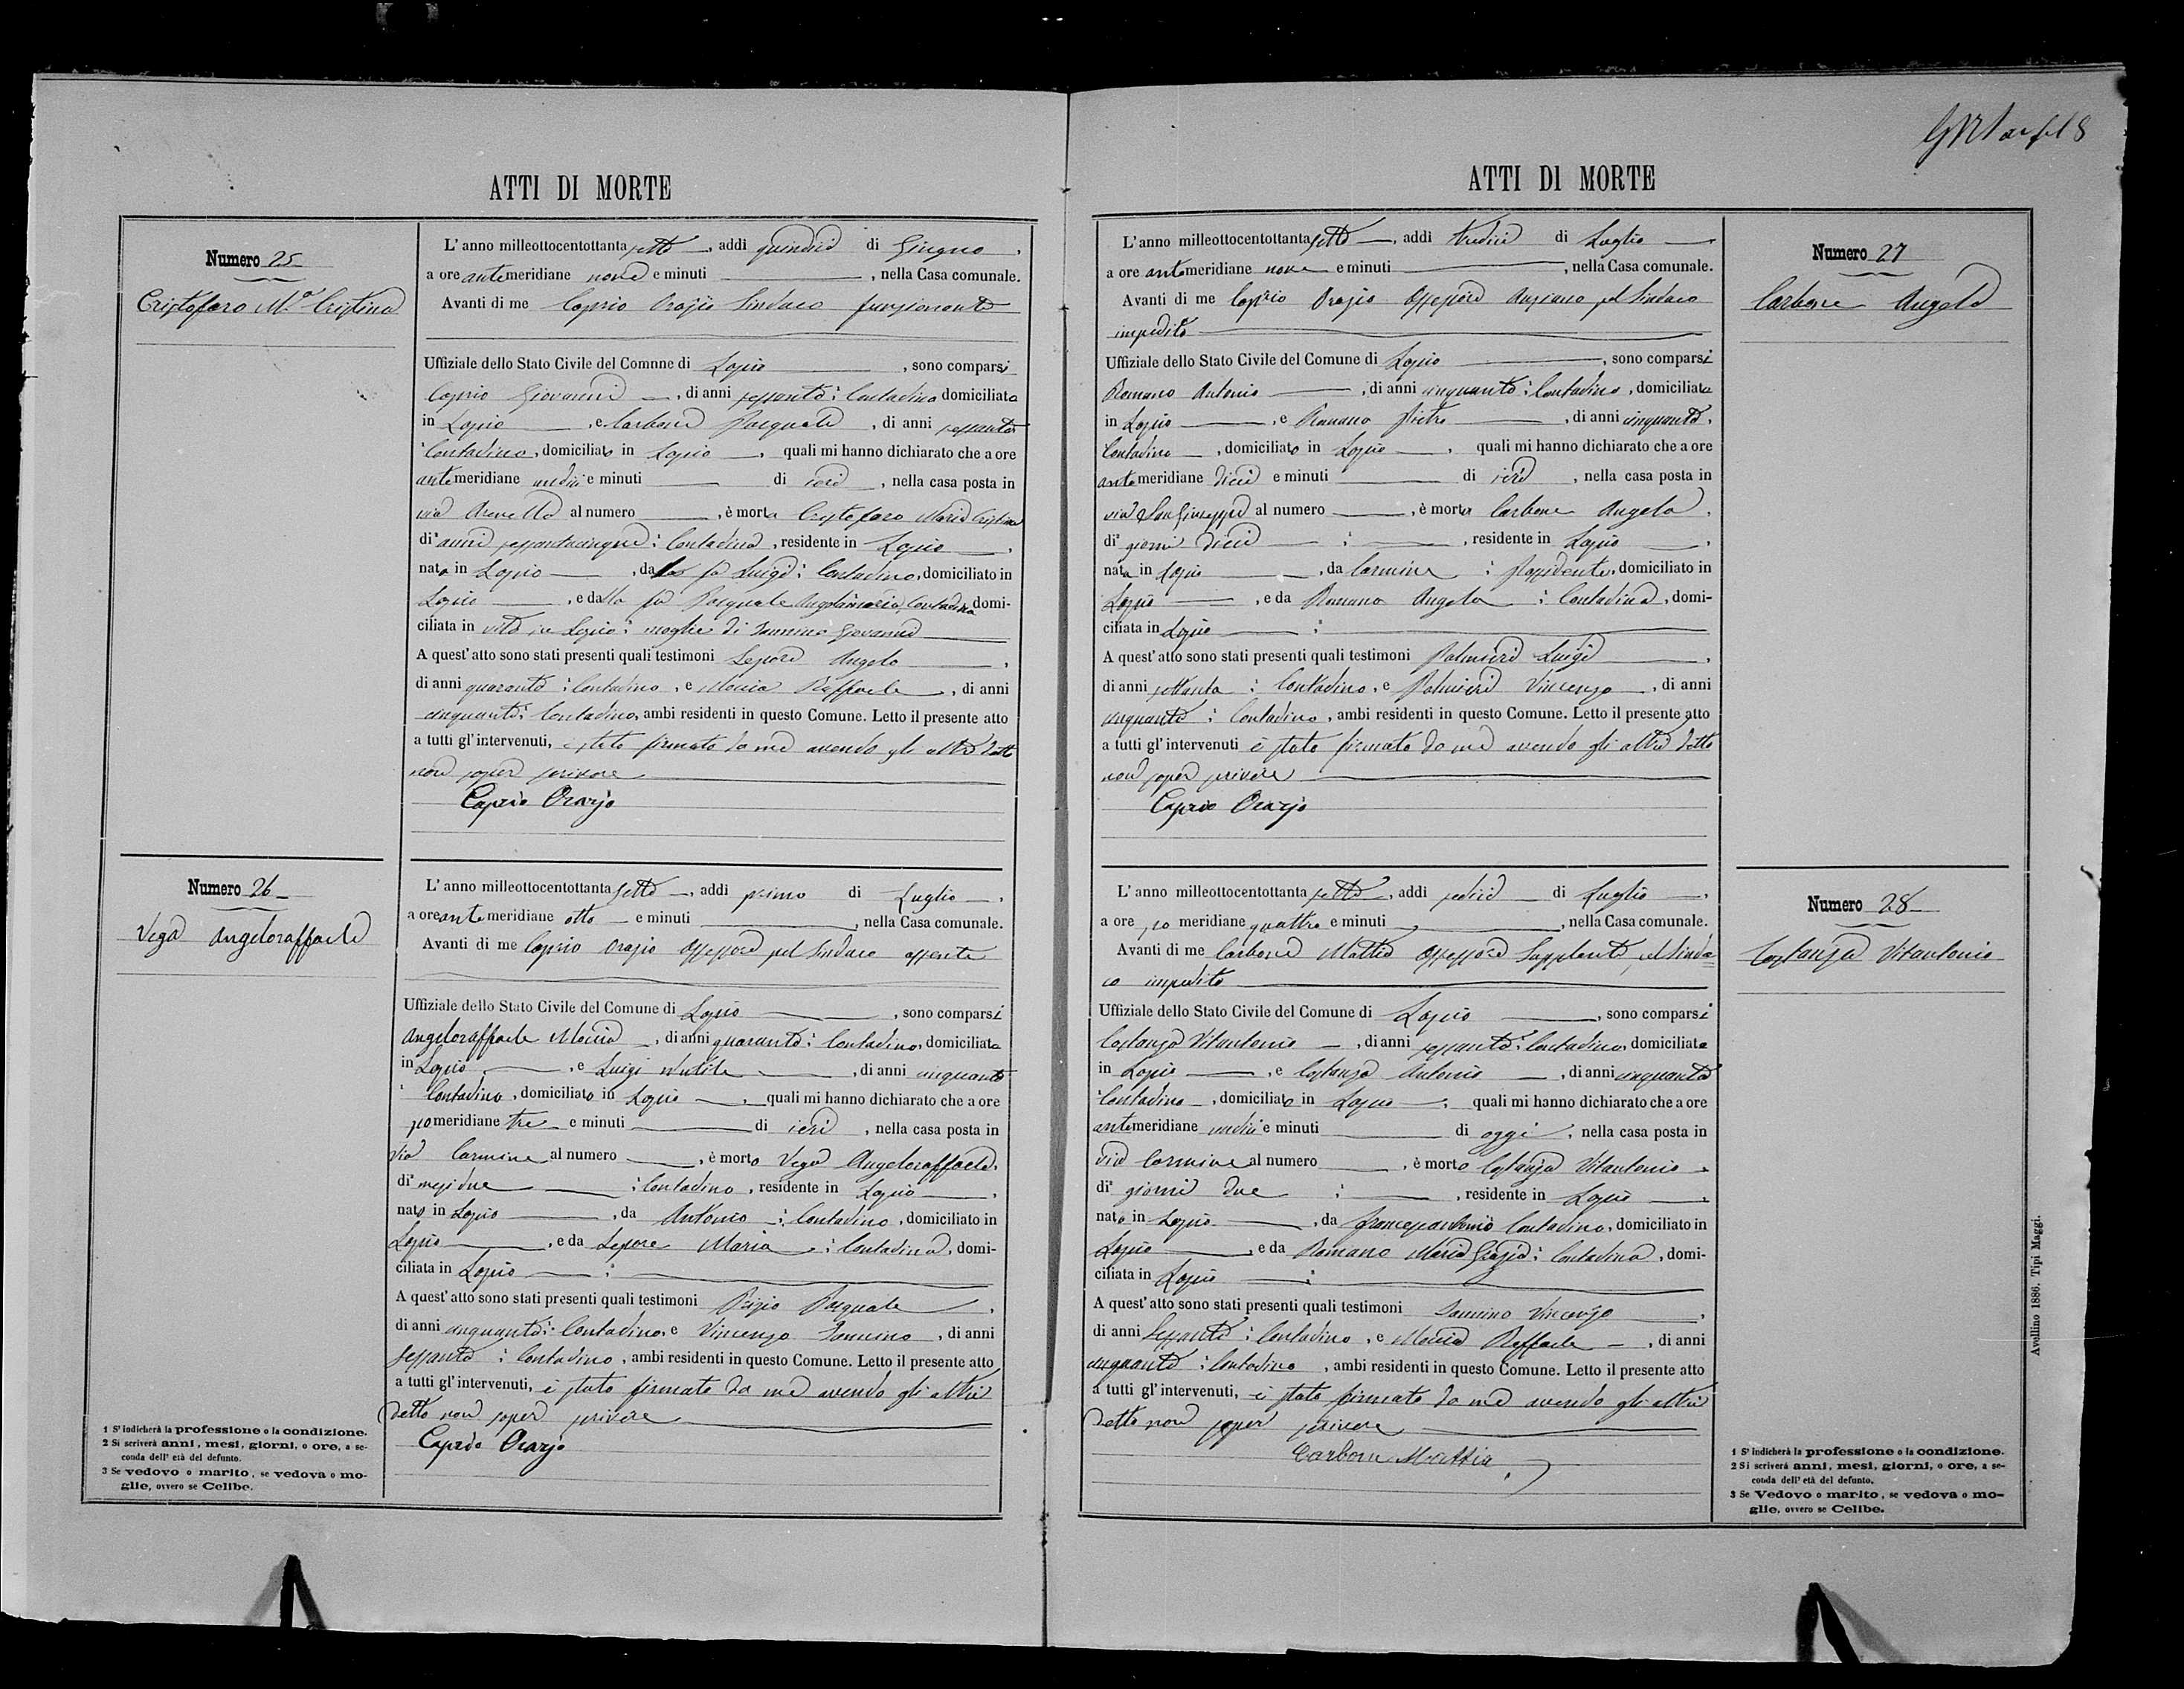 ATTI DI MORTE
Numero 25
Cristofaro M.a Cristina
L'anno milleottocentottanta sette, addi quindici di Giugno,
a ore antemeridiane nove e minuti, nella Casa comunale.
Avanti di me Caprio Orazio Sindaco funzionante
Uffiziale dello Stato Civile del Comune di Lapio, sono comparsi
Caprio Giovanni, di anni sessanta: Contadino domiciliato
in Lapio, e Carbone Pasquale, di anni sessanta
Contadino, domiciliato in Lapio, quali mi hanno dichiarato che a ore
antemeridiane undici e minuti di ieri, nella casa posta in
via Arenella al numero, è morta Cristofaro Maria Cristina
di anni sessantacinque: Contadina, residente in Lapio,
nata in Lapio, da fu Luigi: Contadino, domiciliato in
Lapio, e dalla fu Pasquale Angelamaria Contadina domi-
ciliata in vita in Lapio: moglie di Iannino Giovanni
A quest'atto sono stati presenti quali testimoni Lepore Angelo,
di anni quaranta: Contadino, e Moccia Raffaele, di anni
cinquanta: Contadino, ambi residenti in questo Comune. Letto il presente atto
a tutti gl'intervenuti, è stato firmato da me avendo gli altri detto
non saper scrivere
Caprio Orazio
Numero 26
Vega Angeloraffaele
L'anno milleottocentottanta sette, addi primo di Luglio,
a ore antemeridiane otto e minuti, nella Casa comunale.
Avanti di me Caprio Orazio Assessore pel Sindaco assente
Uffiziale dello Stato Civile del Comune di Lapio, sono comparsi
Angeloraffaele Moccia, di anni quaranta: Contadino, domiciliato
in Lapio, e Luigi, di anni cinquanta
Contadino, domiciliato in Lapio, quali mi hanno dichiarato che a ore
pomeridiane tre e minuti di ieri, nella casa posta in
via Carmine al numero, è morto Vega Angeloraffaele,
di mesi due: Contadino, residente in Lapio,
nato in Lapio, da Antonio: Contadino, domiciliato in
Lapio, e da Lepore Maria: Contadina, domi-
ciliata in Lapio:
A quest'atto sono stati presenti quali testimoni Pasquale,
di anni cinquanta: Contadino, e Vincenzo Iannino, di anni
sessanta: Contadino, ambi residenti in questo Comune. Letto il presente atto
a tutti gl'intervenuti, è stato firmato da me avendo gli altri
detto non saper scrivere
Caprio Orazio
1 S'indicherà la professione o la condizione.
2 Si scriverà anni, mesi, giorni, o ore, a se-
conda dell'età del defunto.
3 Se vedovo o marito, se vedova o mo-
glie, ovvero se Celibe.
ATTI DI MORTE
Numero 27
Carbone Angela
L'anno milleottocentottanta sette, addi tredici di Luglio
a ore antemeridiane nove e minuti, nella Casa comunale.
Avanti di me Caprio Orazio Assessore Anziano pel Sindaco
impedito
Uffiziale dello Stato Civile del Comune di Lapio, sono comparsi
Romano Antonio, di anni cinquanta: Contadino, domiciliato
in Lapio, e Romano Pietro, di anni cinquanta,
Contadino, domiciliato in Lapio, quali mi hanno dichiarato che a ore
antemeridiane dieci e minuti di ieri, nella casa posta in
via San Giuseppe al numero, è morta Carbone Angela,
di giorni dieci:, residente in Lapio,
nata in Lapio, da Carmine: Possidente, domiciliato in
Lapio, e da Romano Angela: Contadina, domi-
ciliata in Lapio:
A quest'atto sono stati presenti quali testimoni Palmieri Luigi,
di anni settanta: Contadino, e Palmieri Vincenzo, di anni
cinquanta: Contadino, ambi residenti in questo Comune. Letto il presente atto
a tutti gl'intervenuti è stato firmato da me avendo gli altri detto
non saper scrivere
Caprio Orazio
Numero 28
Costanza Vitantonio
L'anno milleottocentottanta sette, addi sedici di Luglio,
a ore pomeridiane quattro e minuti, nella Casa comunale.
Avanti di me Carbone Mattia Assessore Supplente pel Sinda-
co impedito
Uffiziale dello Stato Civile del Comune di Lapio, sono comparsi
Costanza Vitantonio, di anni sessanta: Contadino, domiciliato
in Lapio, e Costanza Antonio, di anni cinquanta
Contadino, domiciliato in Lapio, quali mi hanno dichiarato che a ore
antemeridiane undici e minuti di oggi, nella casa posta in
via Carmine al numero, è morto Costanza Vitantonio,
di giorni due:, residente in Lapio,
nato in Lapio, da Francescantonio Contadino, domiciliato in
Lapio, e da Romano Maria Grazia: Contadina, domi-
ciliata in Lapio:
A quest'atto sono stati presenti quali testimoni Iannino Vincenzo,
di anni sessanta: Contadino, e Moccia Raffaele, di anni
cinquanta: Contadino, ambi residenti in questo Comune. Letto il presente atto
a tutti gl'intervenuti, è stato firmato da me avendo gli altri
detto non saper scrivere
Carbone Mattia
1 S'indicherà la professione o la condizione.
2 Si scriverà anni, mesi, giorni, o ore, a se-
conda dell'età del defunto.
3 Se Vedovo o marito, se vedova o mo-
glie, ovvero se Celibe.
Avellino 1886. Tipi Maggi.